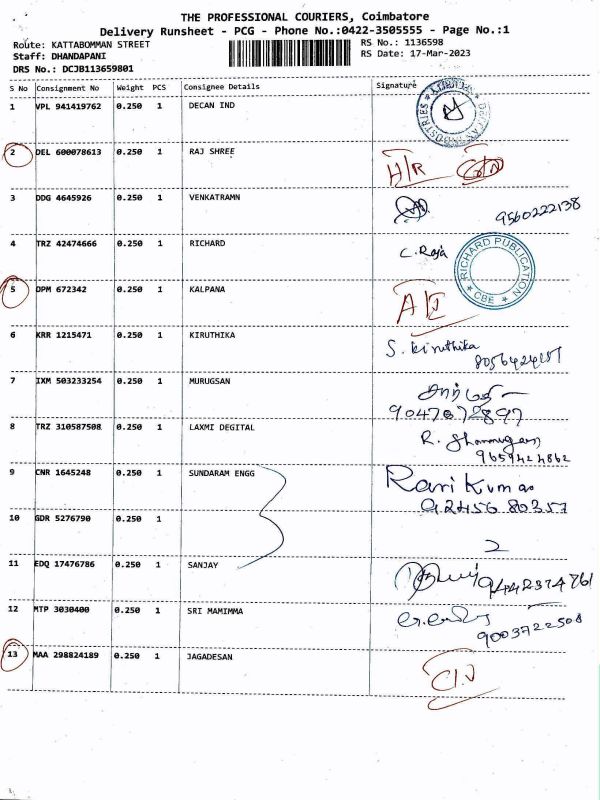 THE PROFESSIONAL COURIERS, Coimbatore
Delivery Runsheet - PCG - Phone No.:0422-3505555 - Page No.:1
Route: KATTABOMMAN STREET RS No.: 1136598
Staff: DHANDAPANI RS Date: 17-Mar-2023
DRS No.: DCJB113659801
S No Consignment No Weight PCS Consignee Details Signature
1 VPL 941419762 0.250 1 DECAN IND
2 DEL 600078613 0.250 1 RAJ SHREE H/R
3 DDG 4645926 0.250 1 VENKATRAMN 9560222138
4 TRZ 42474666 0.250 1 RICHARD C. Raja RICHARD PUBLICATION CBE
5 DPM 672342 0.250 1 KALPANA
6 KRR 1215471 0.250 1 KIRUTHIKA S. Kiruthika
7 IXM 503233254 0.250 1 MURUGSAN
9047672897
8 TRZ 310587508 0.250 1 LAXMI DEGITAL R.
9659424862
9 CNR 1645248 0.250 1 SUNDARAM ENGG Ravi Kumar
92456 80357
10 GDR 5276790 0.250 1
2
11 EDQ 17476786 0.250 1 SANJAY 9442374761
12 MTP 3030400 0.250 1 SRI MAMIMMA
9003722508
13 MAA 298824189 0.250 1 JAGADESAN